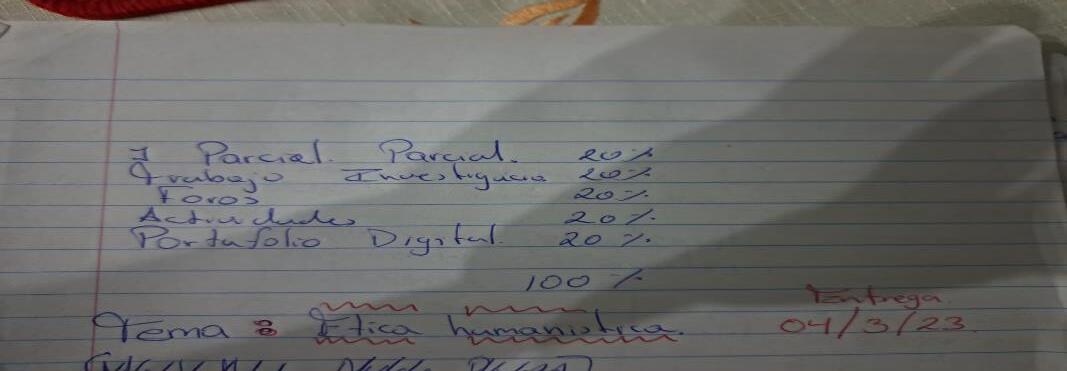 I Parcial. Parcial. 20%
Trabajo Investigacio 20%
Foros 20%
Actividades 20%
Portafolio Digital. 20%
100%
Entrega.
Tema: Etica humanistica. 04/3/23